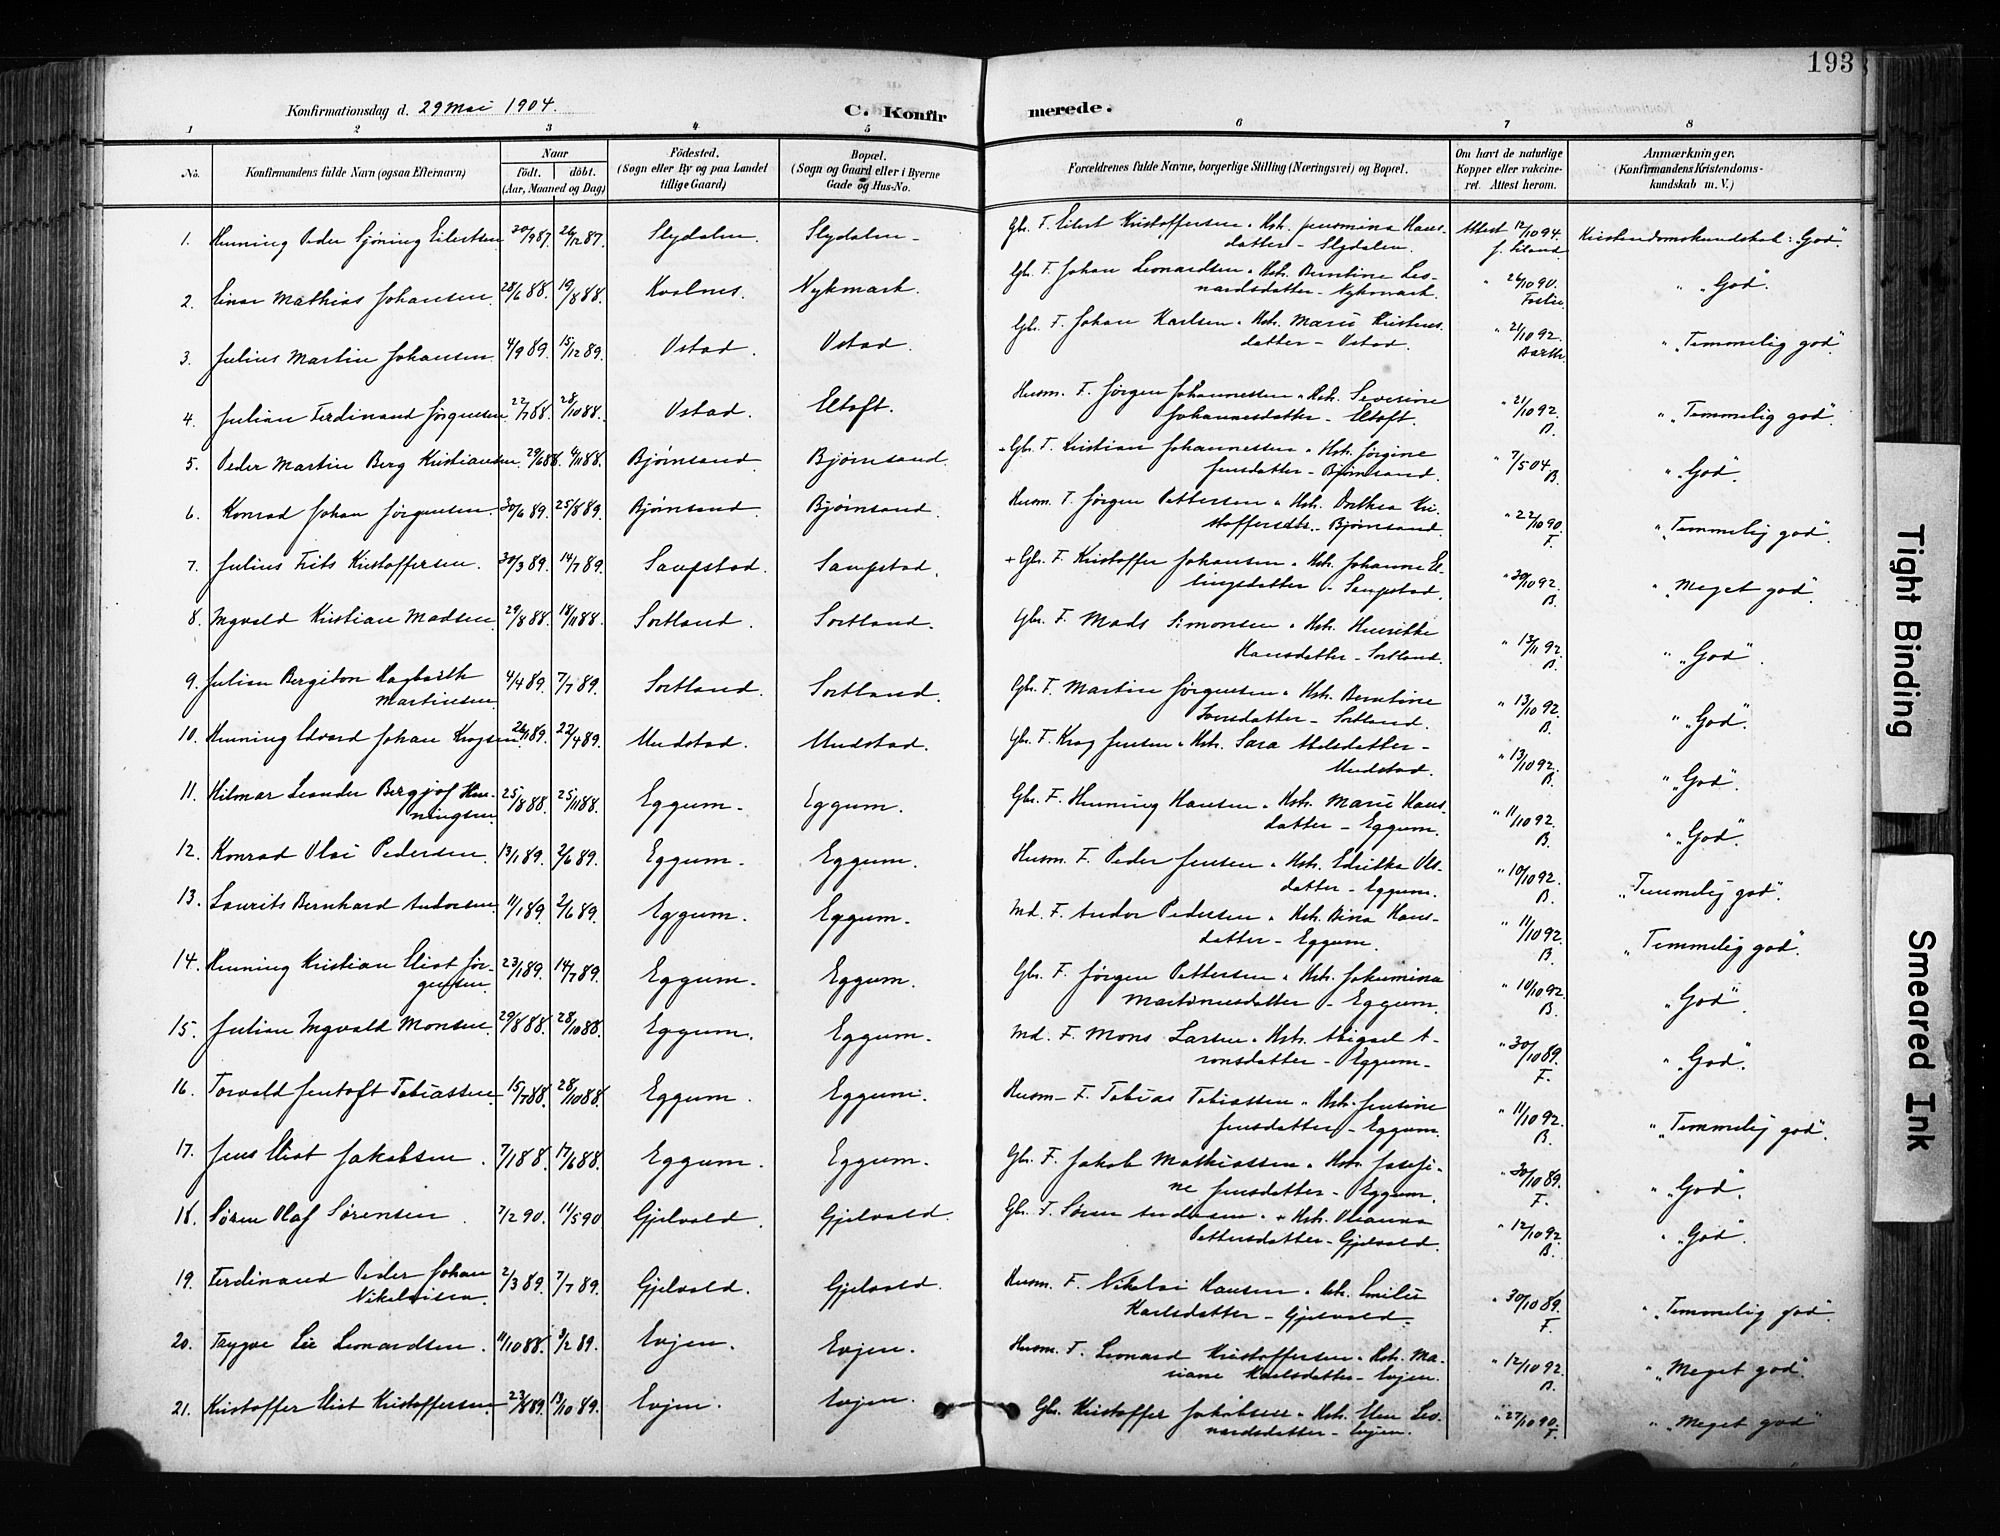 193
Konfirmationsdag d. 29 Mai 1904.
C. Konfirmerede.
1 2 3 4 5 6 7 8
No.
Konfirmandens fulde Navn (ogsaa Efternavn)
Naar
født. døbt.
(Aar, Maaned og Dag)
Fødested.
(Sogn eller By og paa Landet
tillige Gaard)
Bopæl.
(Sogn og Gaard eller i Byerne
Gade og Hus-No.
Forældrenes fulde Navne, borgerlige Stilling (Næringsvei) og Bopæl.
Om havt de naturlige
Kopper eller vakcine-
ret. Attest herom.
Anmærkninger.
(Konfirmandens Kristendoms-
kundskab m. V.)
1. Henning Peder Sjøning Eilertsen 20/9 87. 26/12 87. Slydalen. Slydalen. Gbr. F. Eilert Kristoffersen & Hst. Jensmina Hans-
datter - Slydalen. Attest 12/10 94. Kristendomskundskab: "God".
2. Einar Mathias Johansen. 28/6 88. 19/8 88. Kvalnes. Nykmark. Gbr. F. Johan Leonardsen & Hst. Berntine Leo-
nardsdatter - Nykmark. " 26/10 90. " "God".
3. Julius Martin Johansen. 4/9 89. 15/12 89. Ustad. Ustad. Gbr. F. Johan Karlsen & Hst. Marie
datter - Ustad. " 21/10 92. " "Temmelig god".
4. Julian Ferdinand Jørgensen 22/7 88. 28/10 88. Ustad. Eltoft. Husm. F. Jørgen Johannessen & Hst. Severine
Johannesdatter - Eltoft. " 21/10 92. B. " "Temmelig god".
5. Peder Martin Berg Kristiansen. 29/6 88. Bjørnsand. Bjørnsand. Gbr. F. Kristian Johannessen & Hst. Jørgine
Jensdatter - Bjørnsand. " 7/5 04. B. " "God".
6. Konrad Johan Jørgensen. 30/6 89. 25/8 89. Bjørnsand. Bjørnsand. Husm. F. Jørgen Pettersen & Hst. Dorthea Kri-
stoffersdtr. - Bjørnsand. " 22/10 90. F. " "Temmelig god".
7. Julius Frits Kristoffersen. 30/3 89. 14/7 89. Saupstad. Saupstad. + Gbr. F. Kristoffer Johansen & Hst. Johanne El-
lingsdatter - Saupstad. " 30/10 92. B. " "Meget god".
8. Ingvald Kristian Madsen. 29/8 88. 18/11 88. Sortland. Sortland. Gbr. F. Mads Simonsen & Hst. Henrikke
Hansdatter - Sortland. " 13/11 92. B. " "God".
9. Julian Bergiton Hagbarth
Martinsen. 4/4 89. 7/7 89. Sortland. Sortland. Gbr. F. Martin Jørgensen & Hst. Berntine
datter - Sortland. " 13/10 92. B. " "God".
10. Henning Edvard Johan Krogsen. 22/4 89. Undstad. Undstad. Gbr. F. Krog Jensen & Hst. Sara Abelsdatter -
Undstad. " 13/10 92. B. " "God".
11. Hilmar Leander Bergjof Hen-
ningsen. 25/8 88. 25/11 88. Eggum. Eggum. Gbr. F. Henning Hansen & Hst. Marie Hans-
datter - Eggum. " 11/10 92. B. " "God".
12. Konrad Olai Pedersen. 13/1 89. 2/6 89. Eggum. Eggum. Husm. F. Peder Jensen & Hst. Edrikka Ols-
datter - Eggum. " 10/10 92. B. "Temmelig god".
13. Laurits Bernhard Andorsen. 11/1 89. 2/6 89. Eggum. Eggum. Md. F. Andor Pedersen & Hst. Bina Hans-
datter - Eggum. " 11/10 92. B. "Temmelig god".
14. Henning Kristian Eliot Jør-
gensen. 23/1 89. 14/7 89. Eggum. Eggum. Gbr. F. Jørgen Pettersen & Hst. Jakumina
Martinusdatter - Eggum. " 10/10 92. B. "God".
15. Julian Ingvald Monsen. 29/8 88. 28/10 88. Eggum. Eggum. Md. F. Mons Larsen & Hst. Abigael A-
ronsdatter - Eggum. " 30/10 89. F. " "God".
16. Torvald Jentoft Tobiassen. 15/7 88. 28/10 88. Eggum. Eggum. Husm. F. Tobias Tobiassen & Hst. Jensine
Jensdatter - Eggum. " 11/10 92. B. " "Temmelig god".
17. Jens Eliot Jakobsen. 7/1 88. 17/6 88. Eggum. Eggum. Gbr. F. Jakob Mathiassen & Hst. Josefi-
ne Jensdatter - Eggum. " 30/10 89. F. " "God".
18. Søren Olaf Sørensen. 7/2 90. 11/5 90 Gjelvold. Gjelvold. Gbr. F. Søren Andersen & Hst. Oleanna
Pettersdatter - Gjelvold. " 12/10 92. B. " "God".
19. Ferdinand Peder Johan
Nikolaisen. 2/3 89. 7/7 89. Gjelvold. Gjelvold. Husm. F. Nikolai Hansen & Hst. Emilie
Karlsdatter - Gjelvold. " 30/10 89. F. " "Temmelig god".
20. Trygve Lie Leonardsen. 11/10 88. 3/2 89. Evjen. Evjen. Husm. F. Leonard Kristoffersen & Hst. Ma-
riane Karlsdatter - Evjen. " 12/10 92. B. " "Meget god".
21. Kristoffer Eliot Kristoffersen. 23/8 89. 13/10 89. Evjen. Evjen. Gbr. Kristoffer Jakobsen & Hst. Elen Leo-
nardsdatter - Evjen. " 27/10 90. F. " "Meget god"
Tight Binding
Smeared Ink